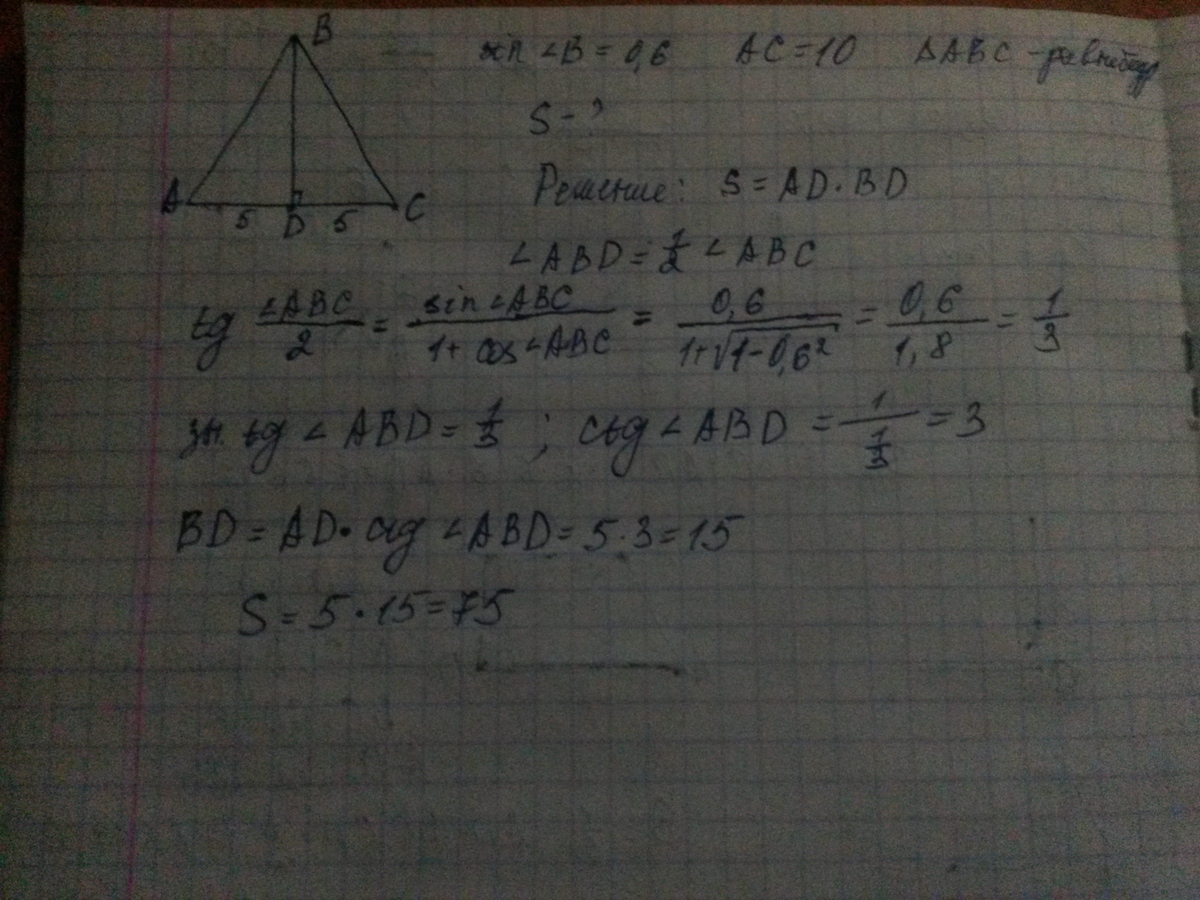 B
sin ∠B = 0,6 AC = 10 ΔABC - равнобедр
S - ?
A 5 D 5 C
Решение: S = AD · BD
∠ABD = 1/2 ∠ABC
tg ∠ABC/2 = sin ∠ABC / 1 + cos ∠ABC = 0,6 / 1+√1-0,6² = 0,6 / 1,8 = 1/3
зн. tg ∠ABD = 1/3 ; ctg ∠ABD = 1 / 1/3 = 3
BD = AD · ctg ∠ABD = 5 · 3 = 15
S = 5 · 15 = 75